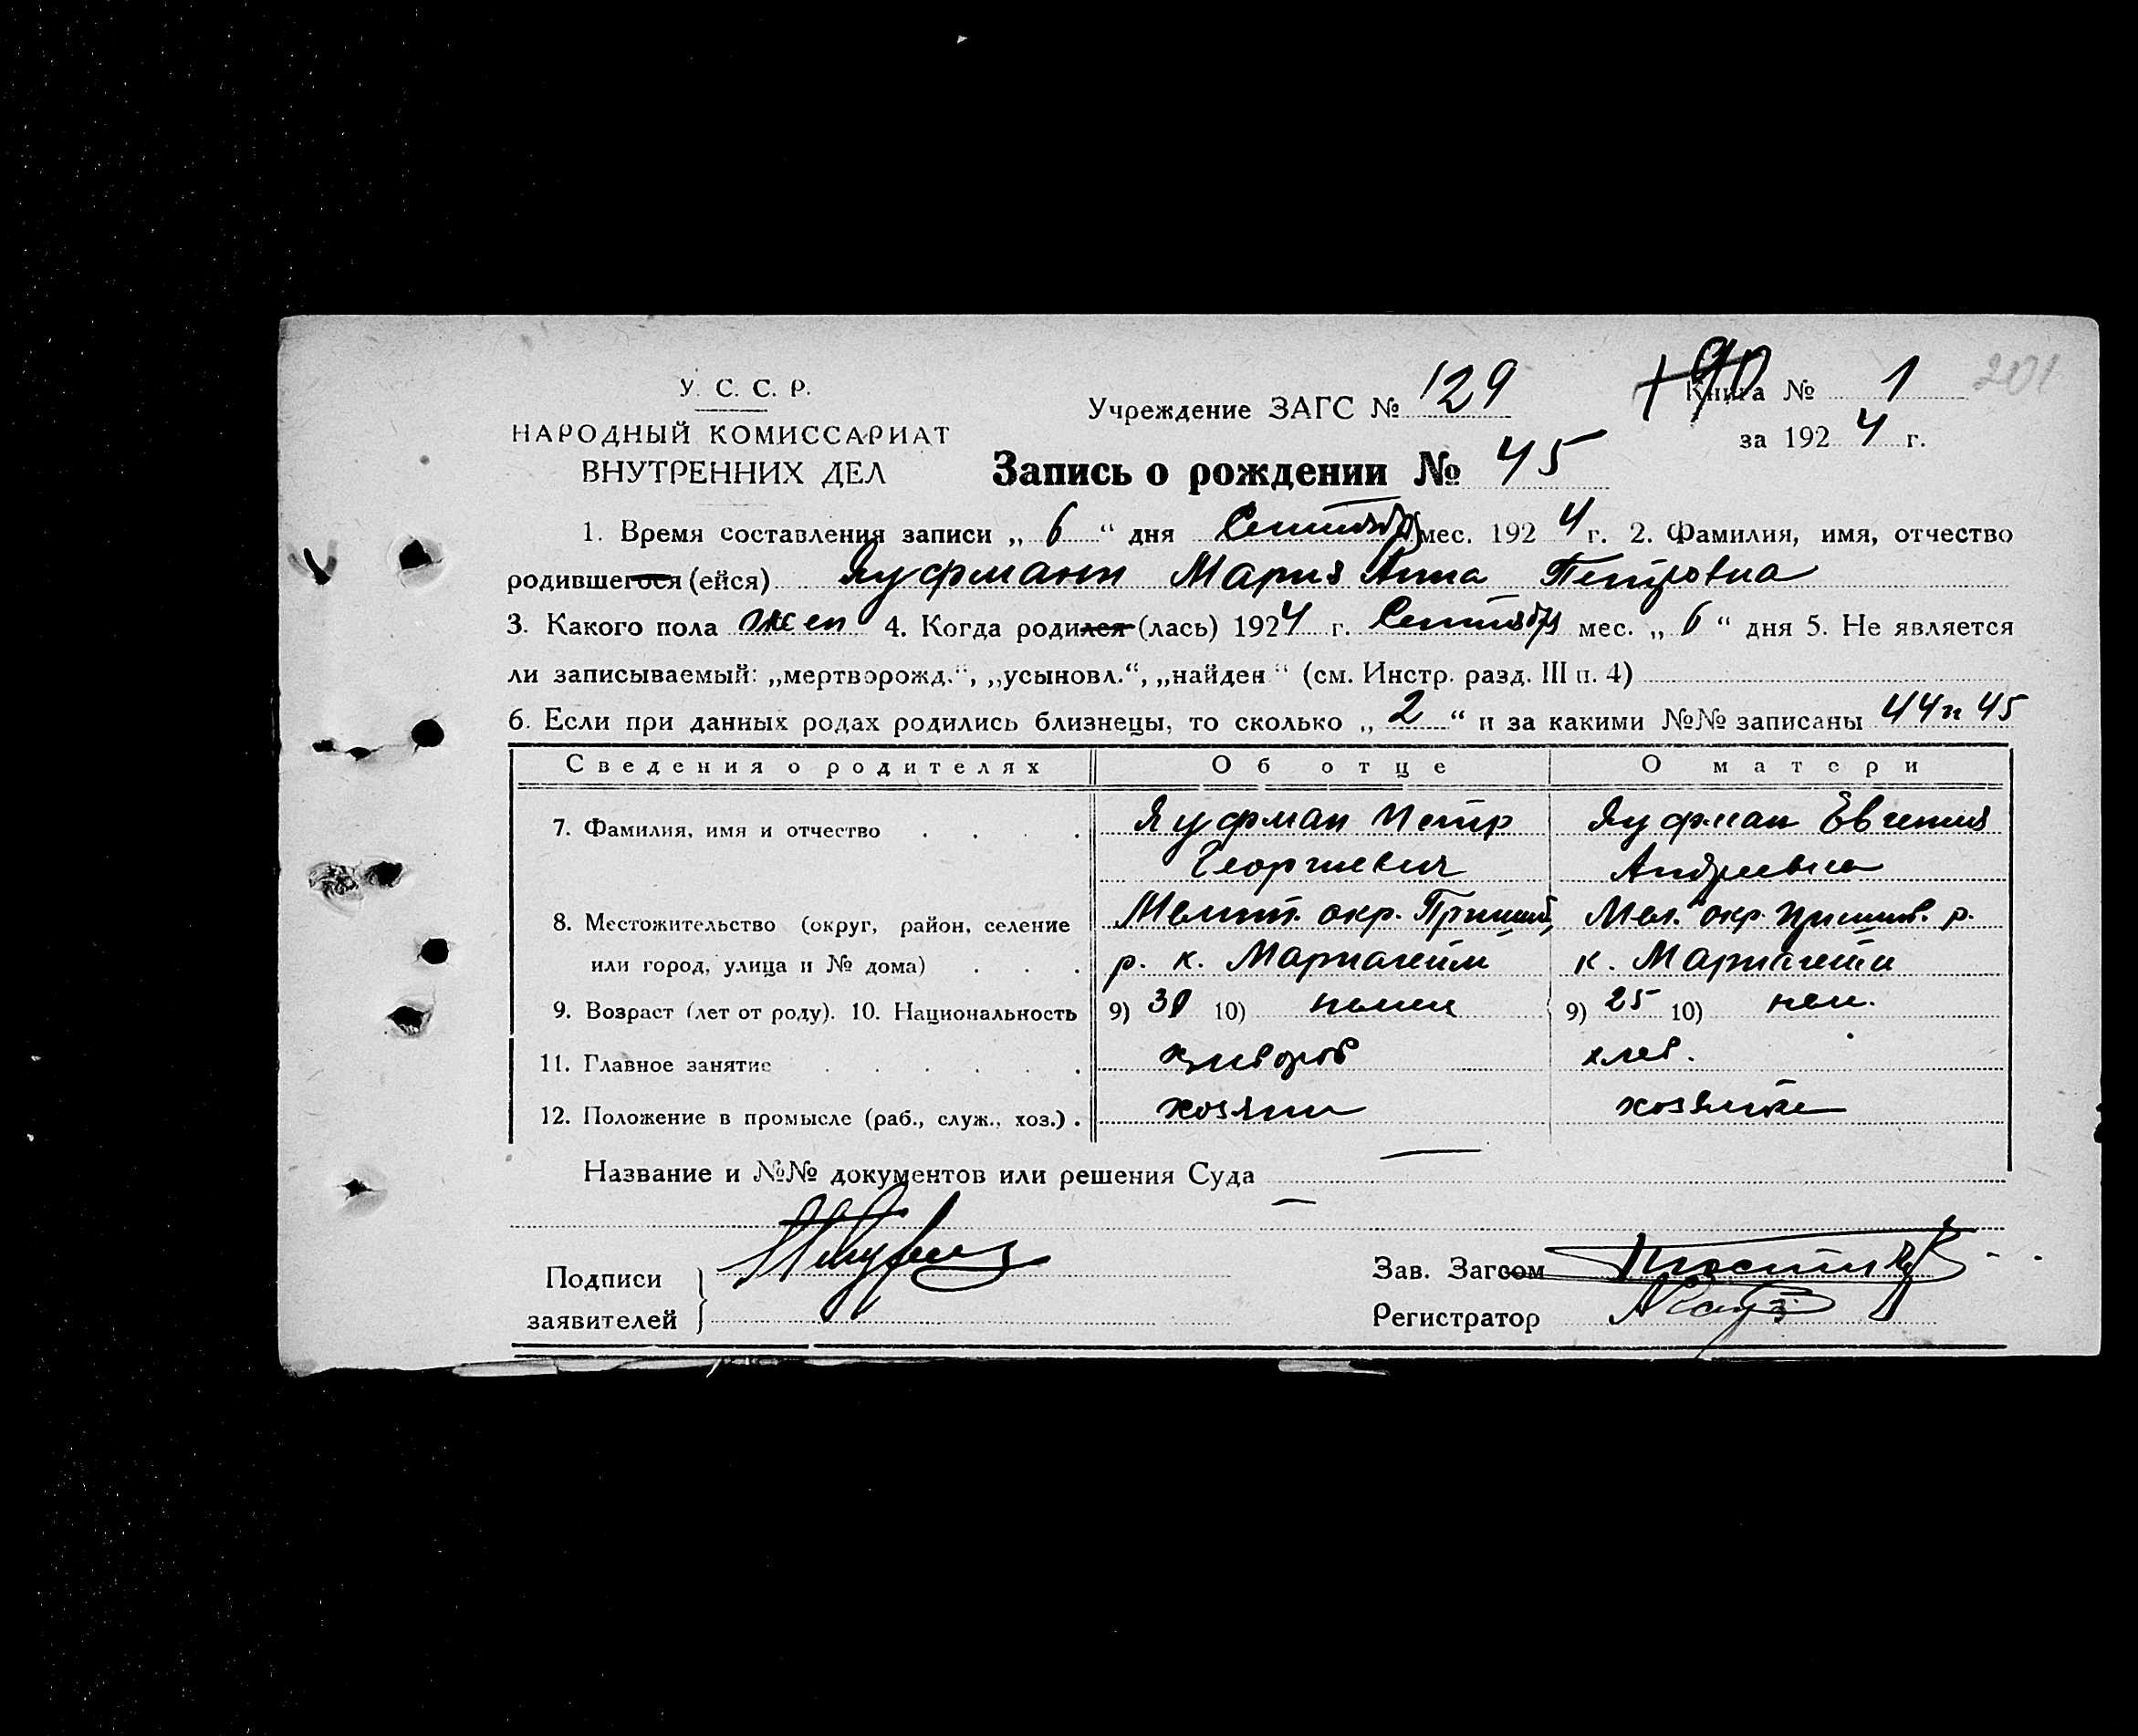 У. С. С. Р.
НАРОДНЫЙ КОМИССАРИАТ
ВНУТРЕННИХ ДЕЛ
Учреждение ЗАГС № 129
Книга № 1
201
за 1924 г.
Запись о рождении № 45
1. Время составления записи „ 6 “ дня Сентября мес. 1924 г. 2. Фамилия, имя, отчество
родившегося (ейся) Яуфманн Мария Анна Петровна
3. Какого пола жен 4. Когда родился (лась) 1924 г. Сентября мес. „ 6 “ дня 5. Не является
ли записываемый: „мертворожд.“, „усыновл.“, „найден“ (см. Инстр. разд. III п. 4)
6. Если при данных родах родились близнецы, то сколько „ 2 “ и за какими №№ записаны 44 и 45
Сведения о родителях Об отце О матери
7. Фамилия, имя и отчество . . . . Яуфман Петр Яуфман Евгения
Георгиевич Андреевна
8. Местожительство (округ, район, селение Мелит. окр. Пришиб. Мел. окр. Пришиб. р.
или город, улица и № дома) . . . р. к. Мариагейм к. Мариагейм
9. Возраст (лет от роду). 10. Национальность 9) 30 10) немец 9) 25 10) нем.
11. Главное занятие . . . . . . хлебороб хлеб.
12. Положение в промысле (раб., служ., хоз.) . хозяин хозяйка
Название и №№ документов или решения Суда —
—
Подписи
заявителей
Зав. Загсом
Регистратор